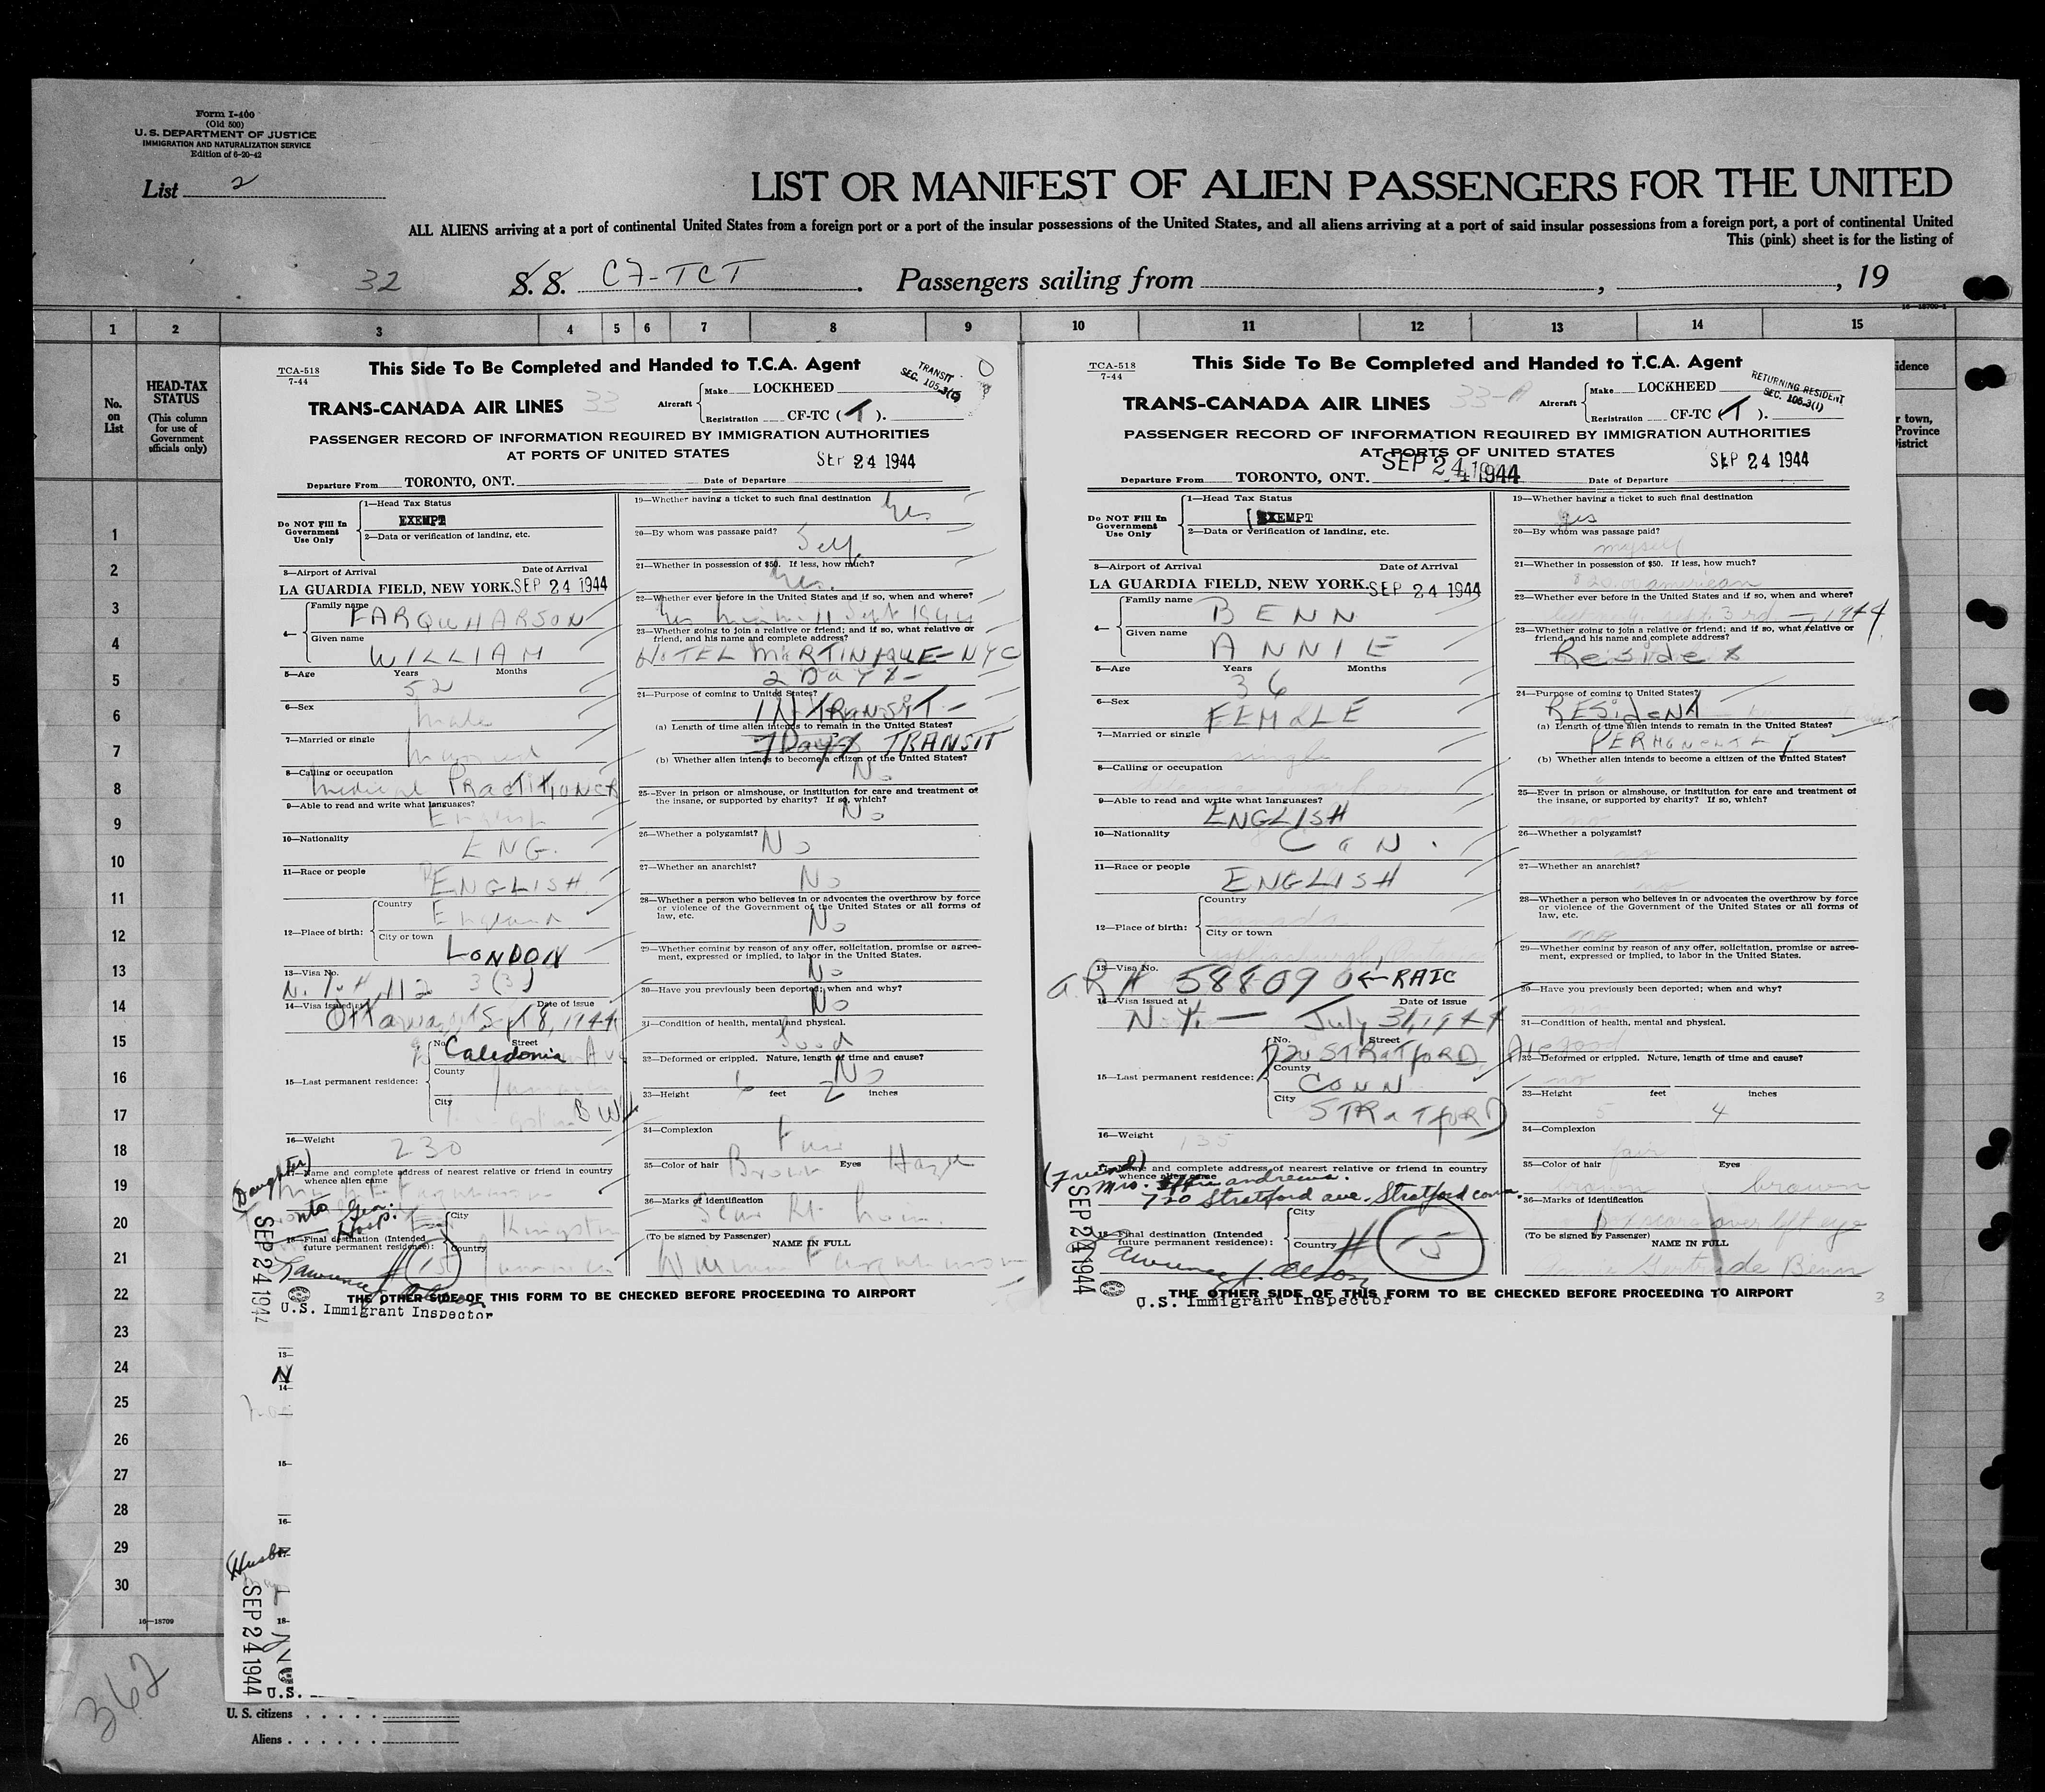 Form I-400
(Old 500)
U. S. DEPARTMENT OF JUSTICE
IMMIGRATION AND NATURALIZATION SERVICE
Edition of 6-20-42
List 2
LIST OR MANIFEST OF ALIEN PASSENGERS FOR THE UNITED
ALL ALIENS arriving at a port of continental United States from a foreign port or a port of the insular possessions of the United States, and all aliens arriving at a port of said insular possessions from a foreign port, a port of continental United
This (pink) sheet is for the listing of
32 S. S. CF-TCT . Passengers sailing from , , 19
16—18709-1
1 2 3 4 5 6 7 8 9 10 11 12 13 14 15
No. on List
HEAD-TAX STATUS
(This column for use of Government officials only)
idence
r town,
Province
District
1
2
3
4
5
6
7
8
9
10
11
12
13
14
15
16
17
18
19
20
21
22
23
24
25
26
27
28
29
30
16—18709
362
TCA-518
7-44
This Side To Be Completed and Handed to T.C.A. Agent
TRANSIT
SEC. 105.3(c)
TRANS-CANADA AIR LINES 33
Aircraft Make LOCKHEED
Registration CF-TC ( T ).
PASSENGER RECORD OF INFORMATION REQUIRED BY IMMIGRATION AUTHORITIES
AT PORTS OF UNITED STATES
SEP 24 1944
Departure From TORONTO, ONT. Date of Departure
Do NOT Fill In Government Use Only
1—Head Tax Status
EXEMPT
2—Data or verification of landing, etc.
3—Airport of Arrival Date of Arrival
LA GUARDIA FIELD, NEW YORK. SEP 24 1944
4— Family name FARQUHARSON
Given name WILLIAM
5—Age Years Months
52
6—Sex Male
7—Married or single Married
8—Calling or occupation
Medical PRACTITIONER
9—Able to read and write what languages?
English
10—Nationality ENG.
11—Race or people ENGLISH
12—Place of birth: Country England
City or town
LONDON
13—Visa No.
14—Visa issued at Date of issue
Ottawa Sept 8, 1944
15—Last permanent residence: No. Street
Caledonia Ave
County
Jamaica
City
Kingston BWI
16—Weight 230
(Daughter)
17—Name and complete address of nearest relative or friend in country
whence alien came
Gen.
Hosp.
18—Final destination (Intended future permanent residence): City Kingston
Country Jamaica
Lawrence J. Olson
# 15
SEP 24 1944
U.S. Immigrant Inspector
THE OTHER SIDE OF THIS FORM TO BE CHECKED BEFORE PROCEEDING TO AIRPORT
19—Whether having a ticket to such final destination
Yes
20—By whom was passage paid?
Self
21—Whether in possession of $50. If less, how much?
Yes.
22—Whether ever before in the United States and if so, when and where?
Yes Miami 11 Sept 1944
23—Whether going to join a relative or friend; and if so, what relative or
friend, and his name and complete address?
HOTEL MARTINIQUE—NYC
2 DAYS—
24—Purpose of coming to United States?
IN TRANSIT—
(a) Length of time alien intends to remain in the United States?
7 Days TRANSIT
(b) Whether alien intends to become a citizen of the United States?
No
25—Ever in prison or almshouse, or institution for care and treatment of
the insane, or supported by charity? If so, which?
No
26—Whether a polygamist?
No
27—Whether an anarchist?
No
28—Whether a person who believes in or advocates the overthrow by force
or violence of the Government of the United States or all forms of
law, etc.
No
29—Whether coming by reason of any offer, solicitation, promise or agree-
ment, expressed or implied, to labor in the United States.
No
30—Have you previously been deported; when and why?
No
31—Condition of health, mental and physical.
Good
32—Deformed or crippled. Nature, length of time and cause?
No
33—Height 6 feet 2 inches
34—Complexion Fair
35—Color of hair Brown Eyes Hazel
36—Marks of identification
Scar Rt.
(To be signed by Passenger) NAME IN FULL
William Farquharson
TCA-518
7-44
This Side To Be Completed and Handed to T.C.A. Agent
RETURNING RESIDENT
SEC. 105.3(1)
TRANS-CANADA AIR LINES 33-A
Aircraft Make LOCKHEED
Registration CF-TC ( T ).
PASSENGER RECORD OF INFORMATION REQUIRED BY IMMIGRATION AUTHORITIES
AT PORTS OF UNITED STATES
SEP 24 1944
SEP 24 1944
Departure From TORONTO, ONT. Date of Departure
Do NOT Fill In Government Use Only
1—Head Tax Status
EXEMPT
2—Data or verification of landing, etc.
3—Airport of Arrival Date of Arrival
LA GUARDIA FIELD, NEW YORK. SEP 24 1944
4— Family name BENN
Given name ANNIE
5—Age Years Months
36
6—Sex FEMALE
7—Married or single single
8—Calling or occupation
9—Able to read and write what languages?
ENGLISH
10—Nationality CAN.
11—Race or people ENGLISH
12—Place of birth: Country Canada
City or town
13—Visa No.
A.R# 588090 ← RAIC
14—Visa issued at Date of issue
N.Y.— July 31, 1944
15—Last permanent residence: No. Street
720 STRATFORD Ave
County
CONN
City
STRATFORD
16—Weight 135
(Friend)
17—Name and complete address of nearest relative or friend in country
whence alien came
Mrs. Effie Andrews.
720 Stratford Ave. Stratford Conn.
18—Final destination (Intended future permanent residence): City
Country
# 15
Lawrence J. Olson
SEP 24 1944
U.S. Immigrant Inspector
THE OTHER SIDE OF THIS FORM TO BE CHECKED BEFORE PROCEEDING TO AIRPORT
3
19—Whether having a ticket to such final destination
yes
20—By whom was passage paid?
myself
21—Whether in possession of $50. If less, how much?
$20.00 american
22—Whether ever before in the United States and if so, when and where?
Sept 3rd — 1944
23—Whether going to join a relative or friend; and if so, what relative or
friend, and his name and complete address?
Resides
24—Purpose of coming to United States?
RESIDENT
(a) Length of time alien intends to remain in the United States?
PERMANENTLY
(b) Whether alien intends to become a citizen of the United States?
25—Ever in prison or almshouse, or institution for care and treatment of
the insane, or supported by charity? If so, which?
no
26—Whether a polygamist?
no
27—Whether an anarchist?
no
28—Whether a person who believes in or advocates the overthrow by force
or violence of the Government of the United States or all forms of
law, etc.
no
29—Whether coming by reason of any offer, solicitation, promise or agree-
ment, expressed or implied, to labor in the United States.
30—Have you previously been deported; when and why?
no
31—Condition of health, mental and physical.
good
32—Deformed or crippled. Nature, length of time and cause?
no
33—Height 5 feet 4 inches
34—Complexion fair
35—Color of hair brown Eyes brown
36—Marks of identification
scar over left eye
(To be signed by Passenger) NAME IN FULL
Annie Gertrude Benn
13—
N
14—
15—
16—
(Husb
18—
SEP 24 1944
U.S.
U. S. citizens
Aliens